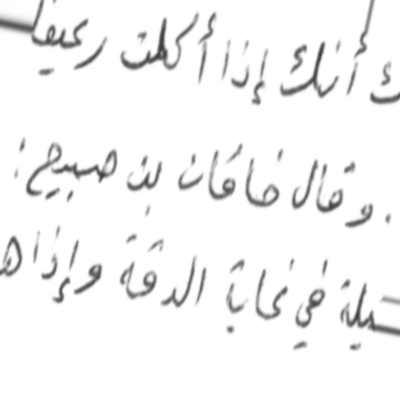 ك أنك إذا أكلت رغيفا
. وقال خاقان بن صبيح :
يلة في نحابة الدقة وإذا ه